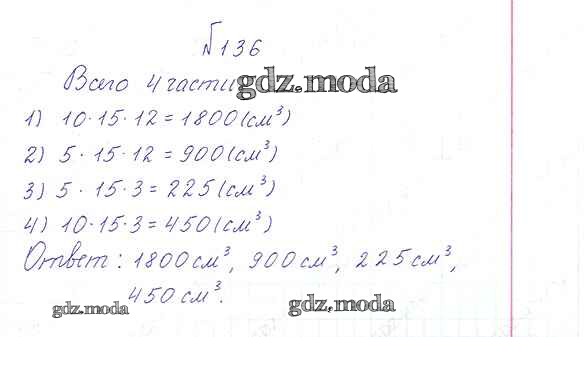 № 136
Всего 4 части gdz.moda
1) 10·15·12 = 1800 (см³)
2) 5 · 15 · 12 = 900 (см³)
3) 5 · 15 · 3 = 225 (см³)
4) 10·15·3 = 450 (см³)
Ответ: 1800 см³, 900 см³, 225 см³,
450 см³.
gdz.moda gdz.moda